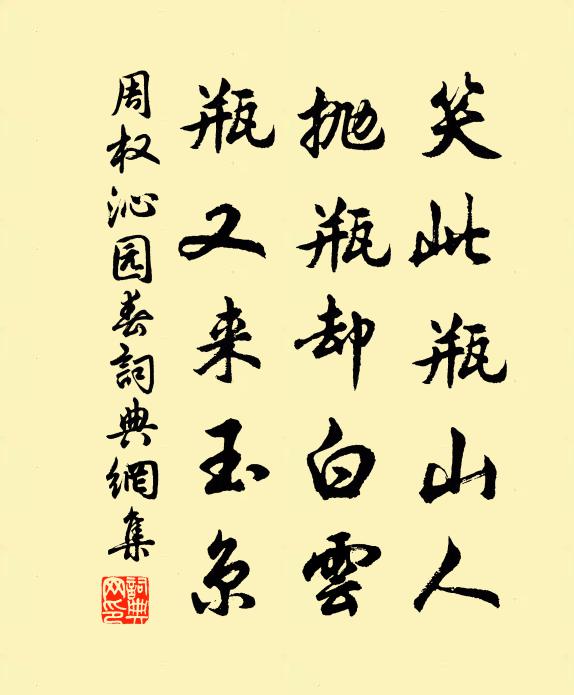 笑此瓶山人
抛瓶却白雲
瓶又来玉京
周权沁园春詞典網集
詞典网印